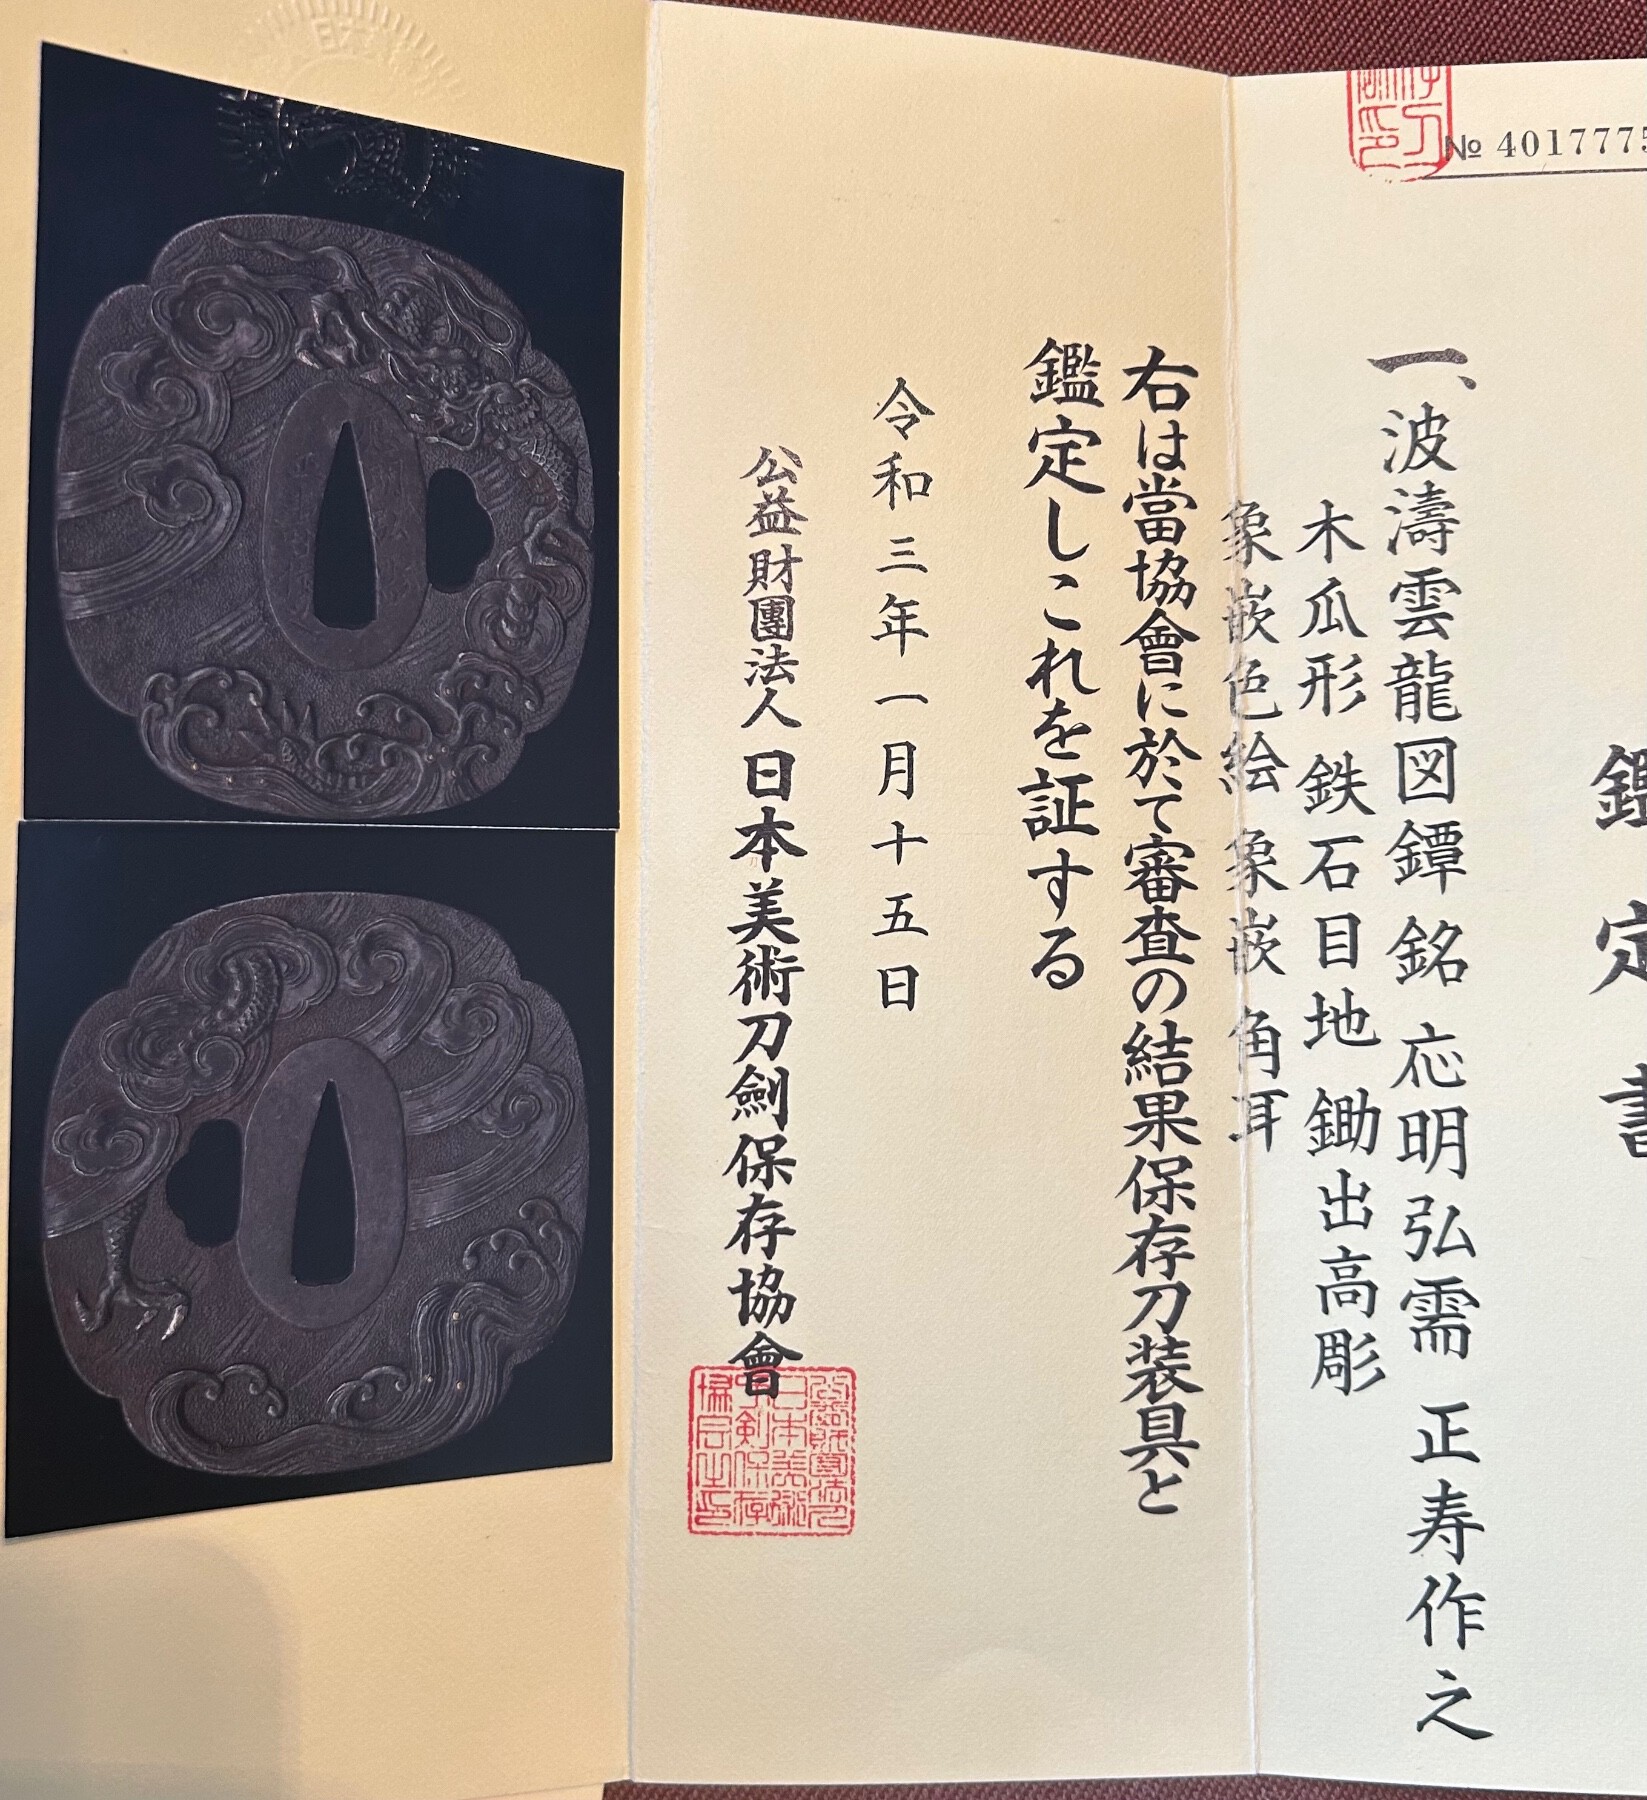 № 4017775
鑑定書
一、波濤雲龍図鐔 銘 応明弘需 正寿作之
木瓜形 鉄石目地 鋤出高彫
象嵌色絵 象嵌 角耳
右は當協會に於て審査の結果保存刀装具と
鑑定しこれを証する
令和三年一月十五日
公益財團法人 日本美術刀劍保存協會